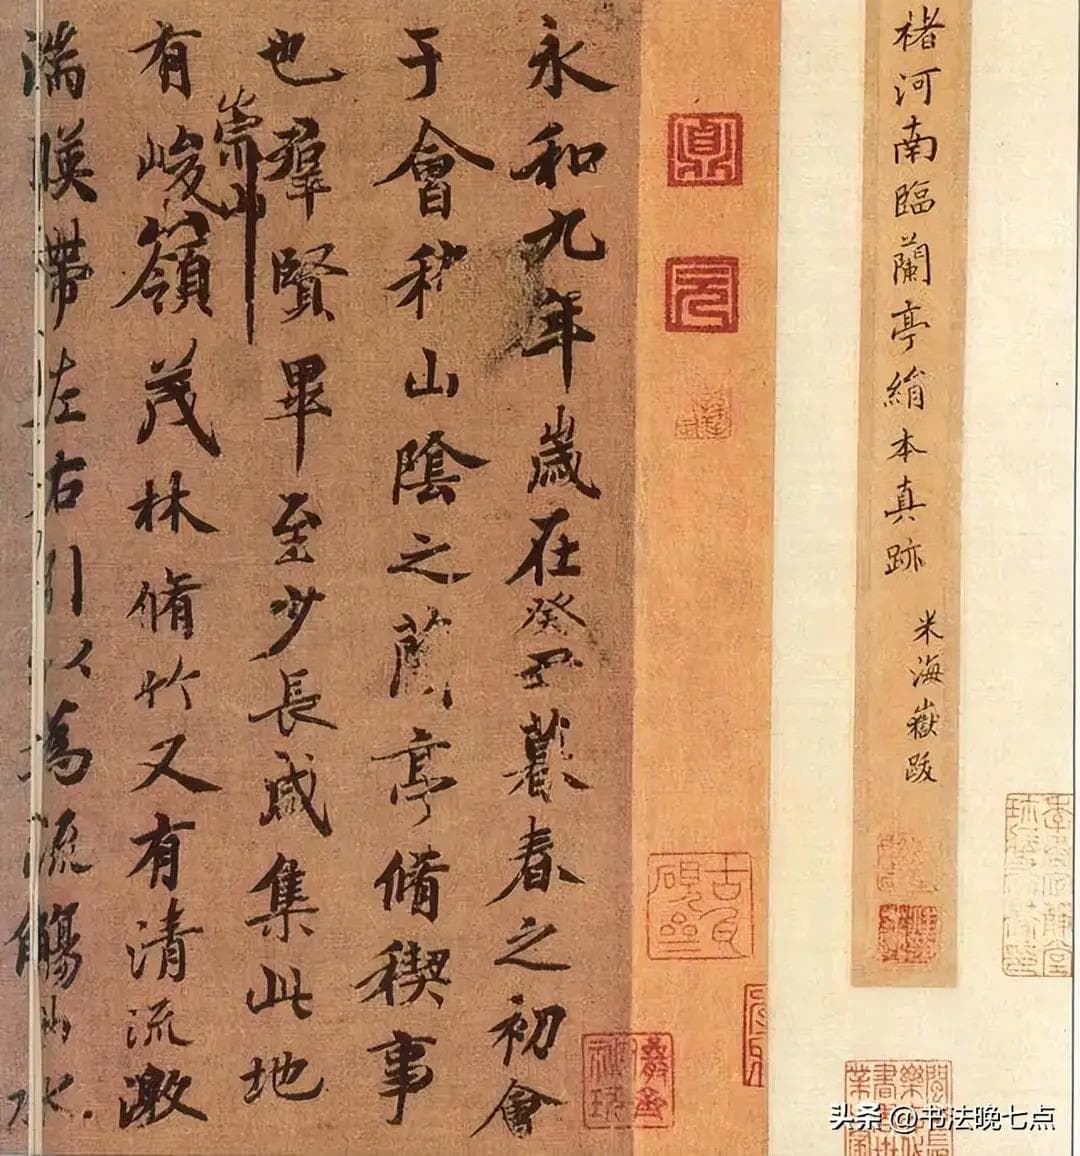 褚河南臨蘭亭絹本真跡
米海嶽跋
永和九年歲在癸丑暮春之初會
于會稽山陰之蘭亭脩稧事
也羣賢畢至少長咸集此地
崇山
有峻嶺茂林脩竹又有清流激
湍暎帶左右引以為流觴曲水
头条 @书法晚七点